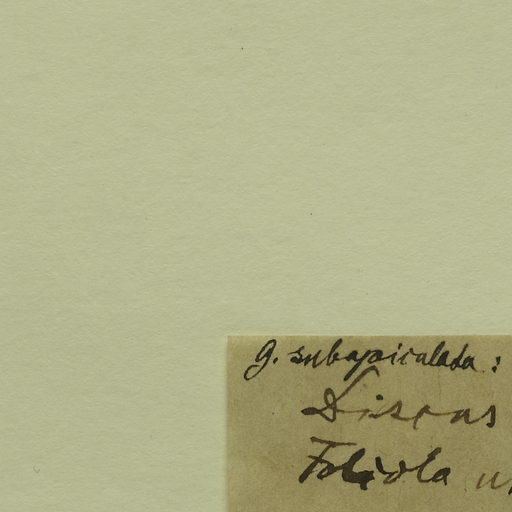 g. subapiculada:
Discus
Foliola